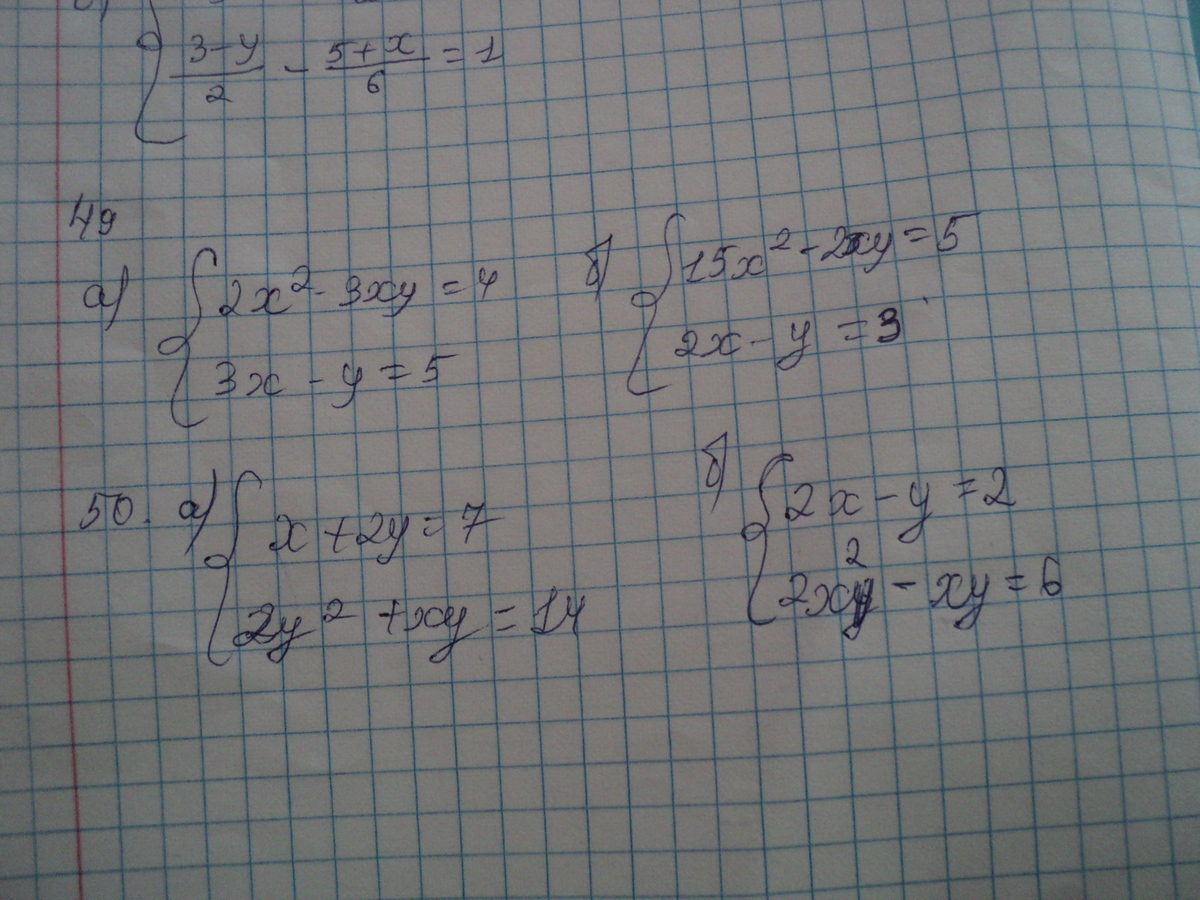 б)
(3-y)/2 - (5+x)/6 = 1
49
а) { 2x² - 3xy = 4
3x - y = 5
б) { 15x² - 2xy = 5
2x - y = 3
50. а) { x + 2y = 7
2y² + xy = 14
б) { 2x - y = 2
2xy² - xy = 6